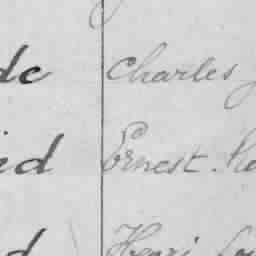 de Charles
ed Ernest
d Henri